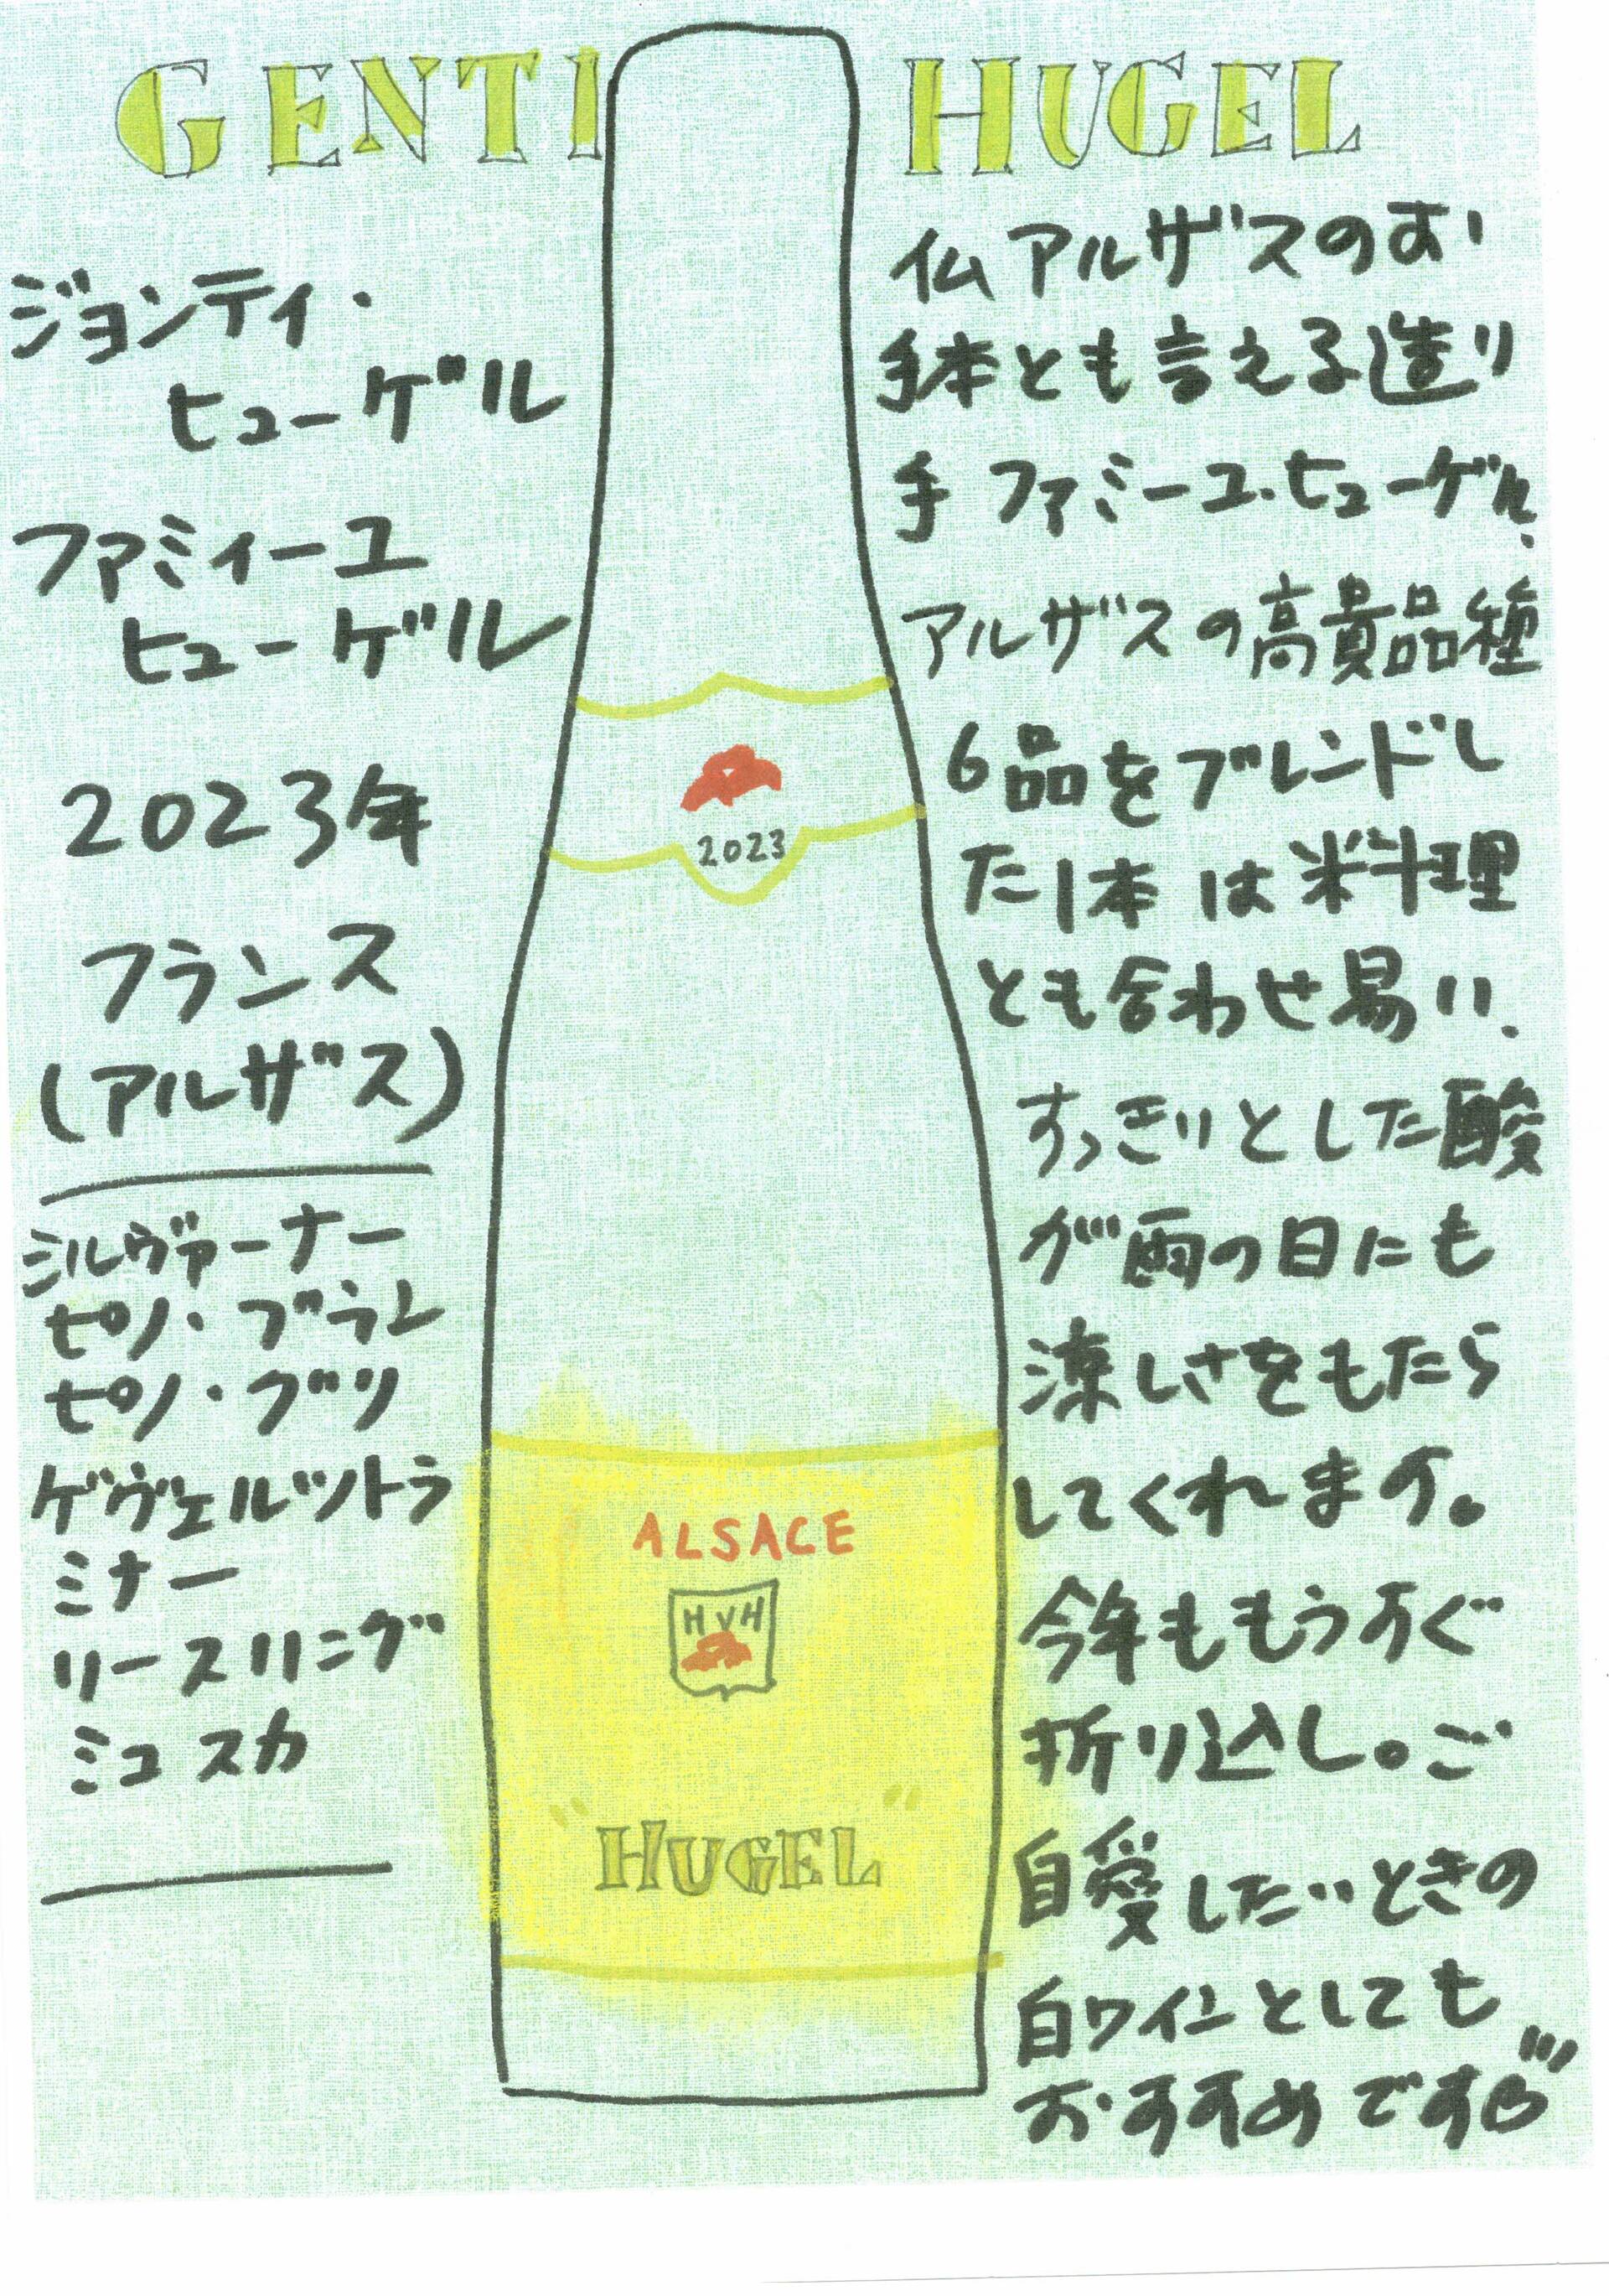 GENTI HUGEL
ジョンティ・
ヒューゲル
ファミィーユ
ヒューゲル
2023年
フランス
(アルザス)
シルヴァーナー
ピノ・ブラン
ピノ・グリ
ゲヴェルツトラ
ミナー
リースリング
ミュスカ
2023
ALSACE
HVH
"HUGEL"
仏アルザスのお
手本とも言える造り
手 ファミーユ・ヒューゲル、
アルザスの高貴品種
6品をブレンドし
た1本は料理
とも合わせ易い、
すっきりとした酸
が雨の日にも
涼しさをもたら
してくれます。
今年ももうすぐ
折り込し。ご
自愛したいときの
白ワインとしても
おすすめです